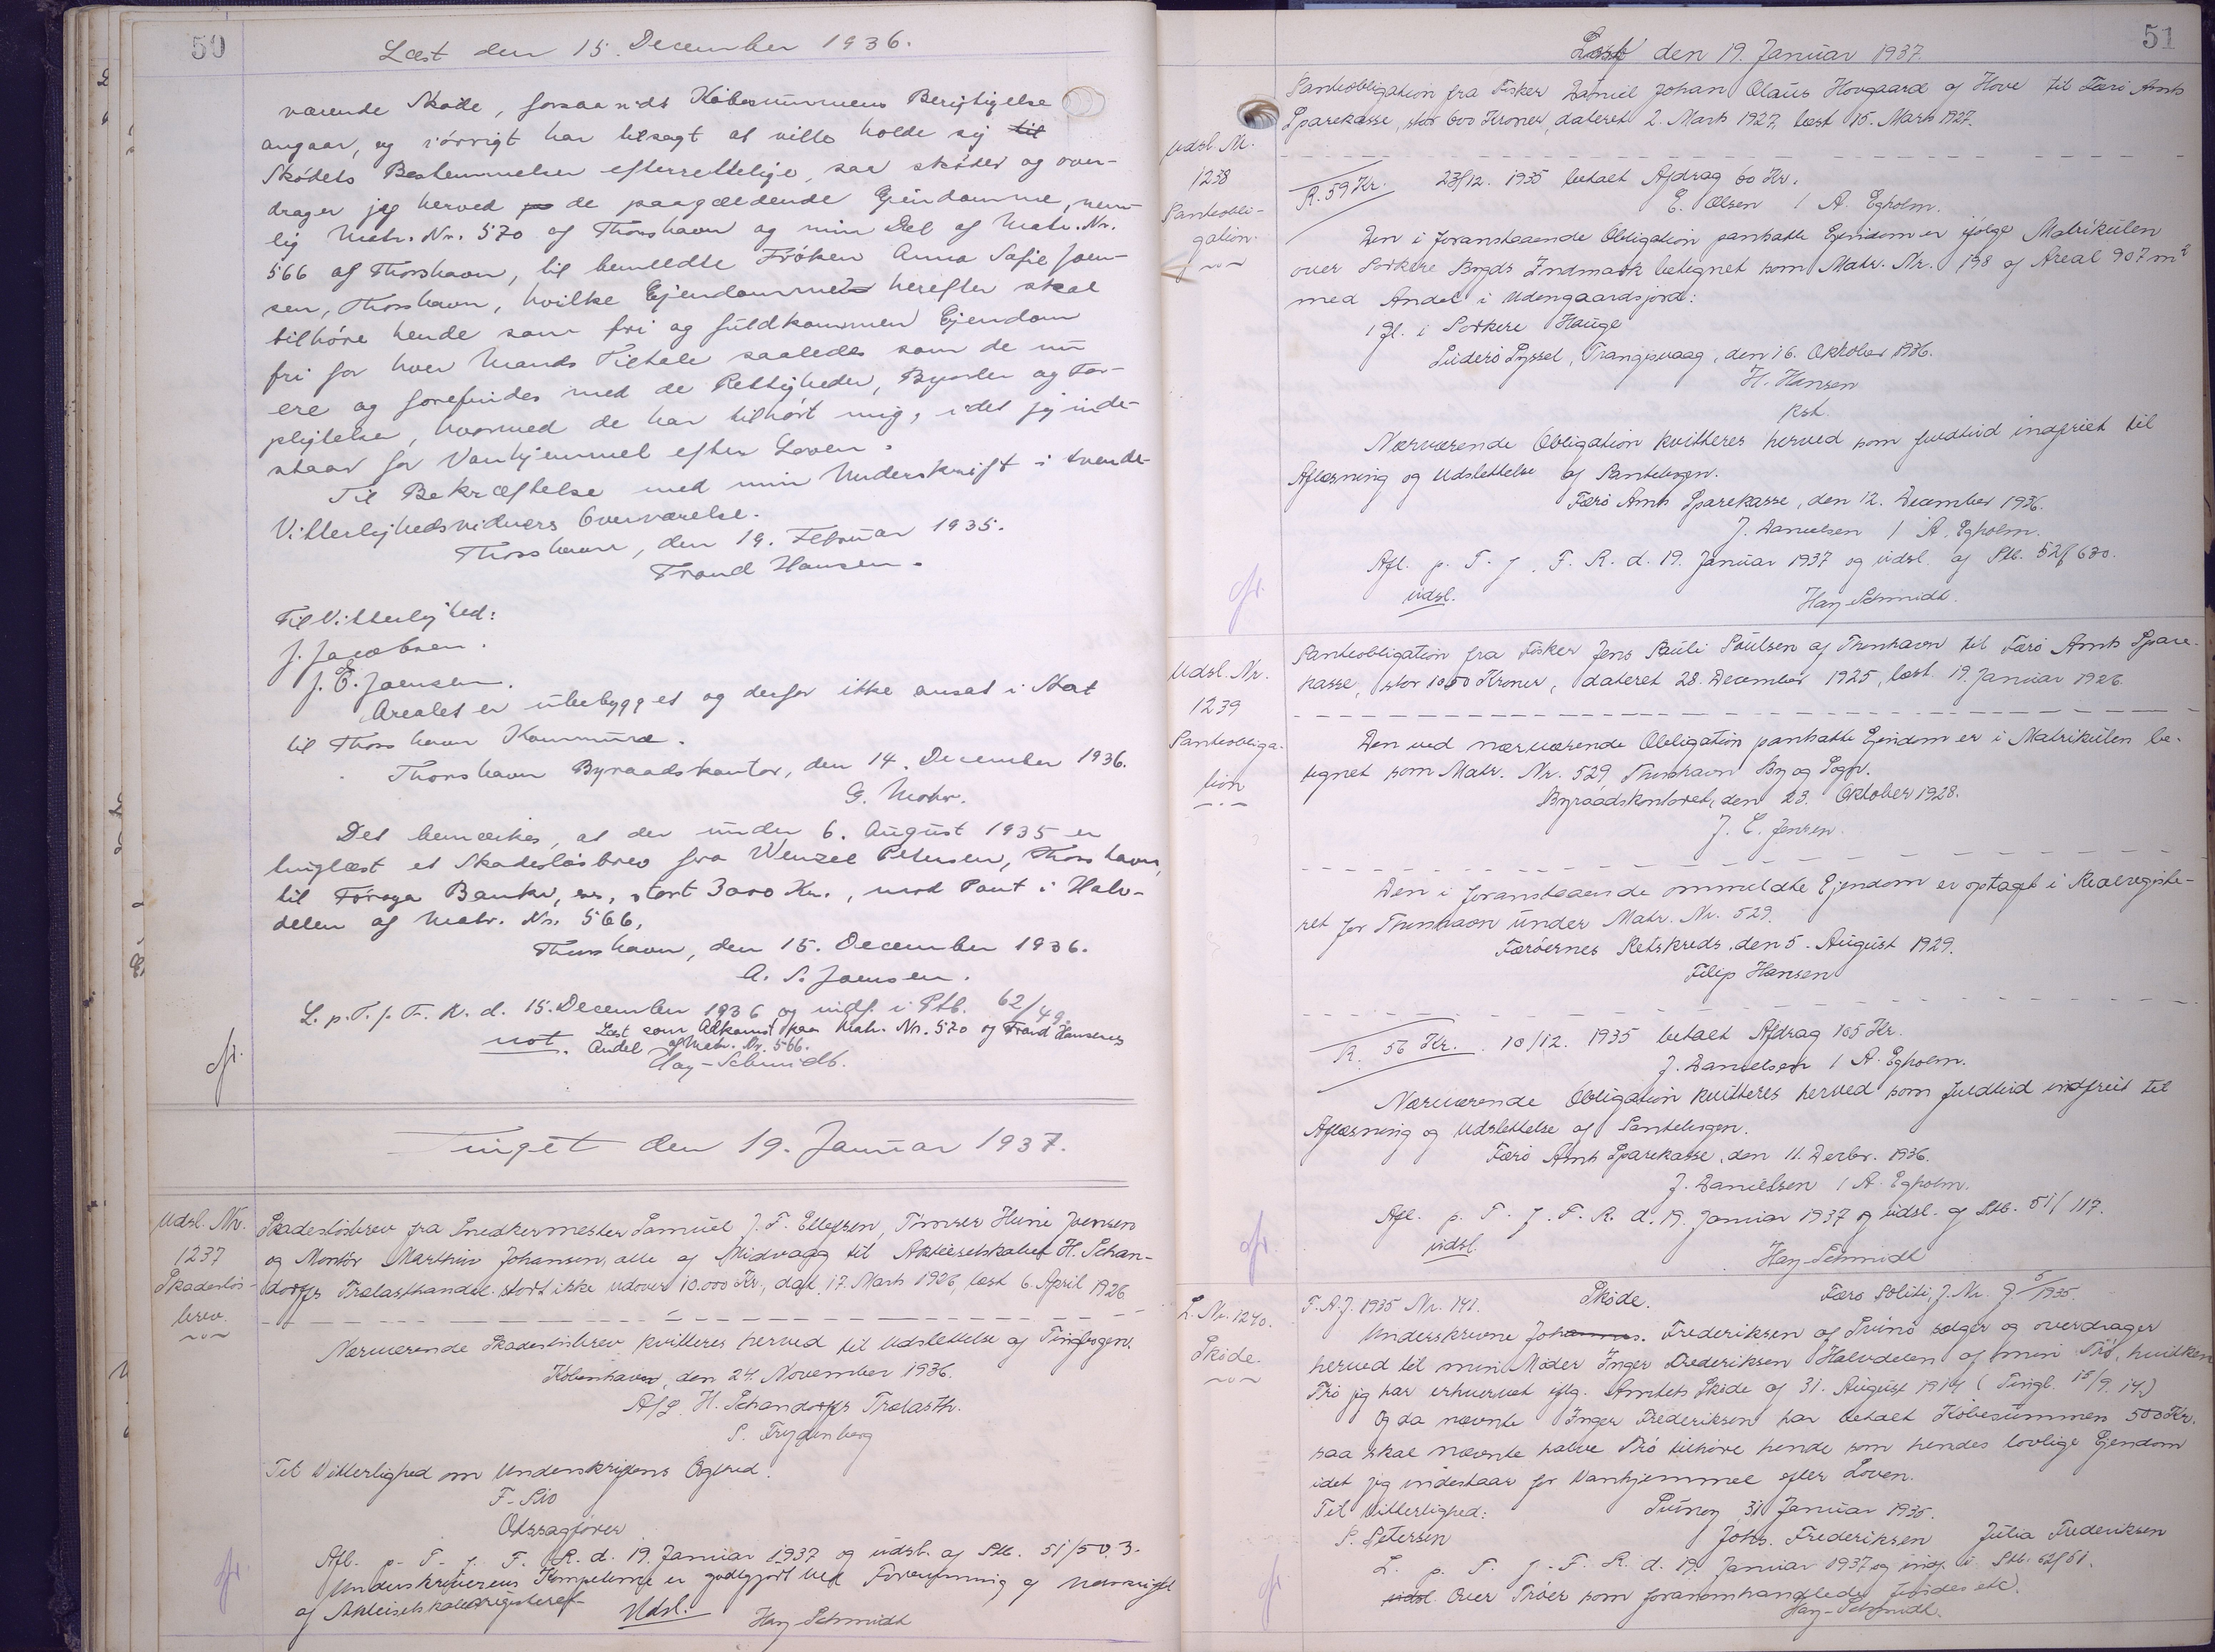 50
Læst den 15. December 1936.
værende Skøde, forsaavidt Købesummens Berigtigelse
angaar, og iøvrigt har tilsagt at ville holde sig til
Skødets Bestemmelser efterrettelige, saa skøder og over-
drager jeg herved de paagældende Ejendomme, nem-
lig Matr. Nr. 570 af Thorshavn og min Del af Matr. Nr.
566 af Thorshavn, til bemeldte Frøken Anna Sofie Joen-
sen, Thorshavn, hvilke Ejendomme herefter skal
tilhøre hende som fri og fuldkommen Ejendom
fri for hver Mands Tiltale saaledes som de nu
ere og forefindes med de Rettigheder, Byrder og For-
pligtelser, hvormed de har tilhørt mig, idet jeg inde-
staar for Vanhjemmel efter Loven.
Til Bekræftelse med min Underskrift i tvende
Vitterlighedsvidners Overværelse.
Thorshavn, den 19. Februar 1935.
Trond Hansen.
Til Vitterlighed:
J. Jacobsen.
J. E. Joensen.
Arealet er ubebygget og derfor ikke ansat i Skat
til Thorshavn Kommune.
Thorshavn Byraadskontor, den 14. December 1936.
G. Mohr.
Det bemærkes, at der under 6. August 1935 er
tinglæst et Skadesløsbrev fra Wenzel Petersen, Thorshavn,
til Føroya Banki, stort 3000 Kr., mod Pant i Halv-
delen af Matr. Nr. 566.
Thorshavn, den 15. December 1936.
A. S. Joensen.
L. p. T. f. F. R. d. 15. December 1936 og indf. i Ptb. 62/49.
not. Læst som Adkomst paa Matr. Nr. 570 og Trond Hansens
Andel af Matr. Nr. 566.
Hay-Schmidt.
cfr.
Tinget den 19. Januar 1937.
Udsl. Nr.
1237
Skadesløs-
brev.
Skadesløsbrev fra Snedkermester Samuel J. F. Ellefsen, Tømrer Heini Joensen
og Montør Marthin Johansen, alle af Midvaag til Aktieselskabet H. Schan-
dorffs Trælasthandel stort ikke udover 10.000 Kr., dat. 17. Marts 1926, læst 6. April 1926
Nærværende Skadesløsbrev kvitteres herved til Udslettelse af Tingbogen.
København, den 24. November 1936.
A/S. H. Schandorffs Trælasth.
S. Frydenberg
Til Vitterlighed om Underskriftens Ægthed.
F. Siö
Ovrsagfører
Afl. p. T. f. F. R. d. 19. Januar 1937 og udsl. af Ptb. 51/503.
Underskriverens Kompetence er godtgjort ved Forevisning af Udskrift
af Aktieselskabsregisteret
Udsl. Hay-Schmidt
cfr.
51
Læst den 19. Januar 1937.
Udsl. Nr.
1238
Pantobli-
gation
Panteobligation fra Fisker Daniel Johan Olaus Hovgaard af Hove til Færø Amts
Sparekasse, stor 600 Kroner, dateret 2. Marts 1927, læst 15. Marts 1927.
R. 59 Kr. 23/12. 1935 betalt Afdrag 60 Kr.
E. Olsen / A. Egholm.
Den i foranstaaende Obligation pantsatte Ejendom er ifølge Matrikulen
over Porkere Bygds Indmark betegnet som Matr. Nr. 198 af Areal 907 m²
med Andel i Udengaardsjord:
1 Gl. i Porkere Hauge
Suderø Syssel, Trangisvaag, den 16. Oktober 1936.
H. Hansen
kst.
Nærværende Obligation kvitteres herved som fuldtud indfriet til
Aflæsning og Udslettelse af Pantebogen.
Færø Amts Sparekasse, den 12. December 1936.
J. Danielsen / A. Egholm.
Afl. p. T. f. F. R. d. 19. Januar 1937 og udsl. af Ptb. 52/630.
udsl. Hay-Schmidt.
cfr.
Udsl. Nr.
1239
Panteobliga-
tion
Panteobligation fra Fisker Jens Pauli Poulsen af Thorshavn til Færø Amts Spare-
kasse, stor 1050 Kroner, dateret 28. December 1925, læst 19. Januar 1926.
Den ved nærværende Obligation pantsatte Ejendom er i Matrikulen be-
tegnet som Matr. Nr. 529, Thorshavn By og Sogn.
Byraadskontoret, den 23. Oktober 1928.
J. E. Jensen.
Den i foranstaaende ommeldte Ejendom er optaget i Realregiste-
ret for Thorshavn under Matr. Nr. 529.
Færøernes Retskreds, den 5. August 1929.
Filip Hansen
R. 56 Kr. 10/12. 1935 betalt Afdrag 105 Kr.
J. Danielsen / A. Egholm.
Nærværende Obligation kvitteres herved som fuldtud indfriet til
Aflæsning og Udslettelse af Pantebogen.
Færø Amts Sparekasse, den 11. Decbr. 1936.
J. Danielsen / A. Egholm.
Afl. p. T. f. F. R. d. 19. Januar 1937 og udsl. af Ptb. 51/117.
udsl. Hay-Schmidt
cfr.
L. Nr. 1240.
Skøde.
F. A. J. 1935 Nr. 141. Skøde. Færø Politi, J. Nr. 9 5/1935.
Underskrevne Johannes. Frederiksen af Svinø sælger og overdrager
herved til min Moder Inger Frederiksen Halvdelen af min Trø, hvilken
Trø jeg har erhvervet iflg. Amtets Skøde af 31. August 1914 (Tingl. 15/9. 14.)
Og da nævnte Inger Frederiksen har betalt Købesummen 500 Kr.
saa skal nævnte halve Trø tilhøre hende som hendes lovlige Ejendom
idet jeg indestaar for Vanhjemmel efter Loven.
Til Vitterlighed: Svinoy 31 Januar 1935.
S. Petersen Johs. Frederiksen Julia Frederiksen
L. p. T. f. F. R. d. 19. Januar 1937 og indf. i Ptb. 62/51.
udsl. Over Trøer som foranomhandlede findes etc.
Hay-Schmidt.
cfr.